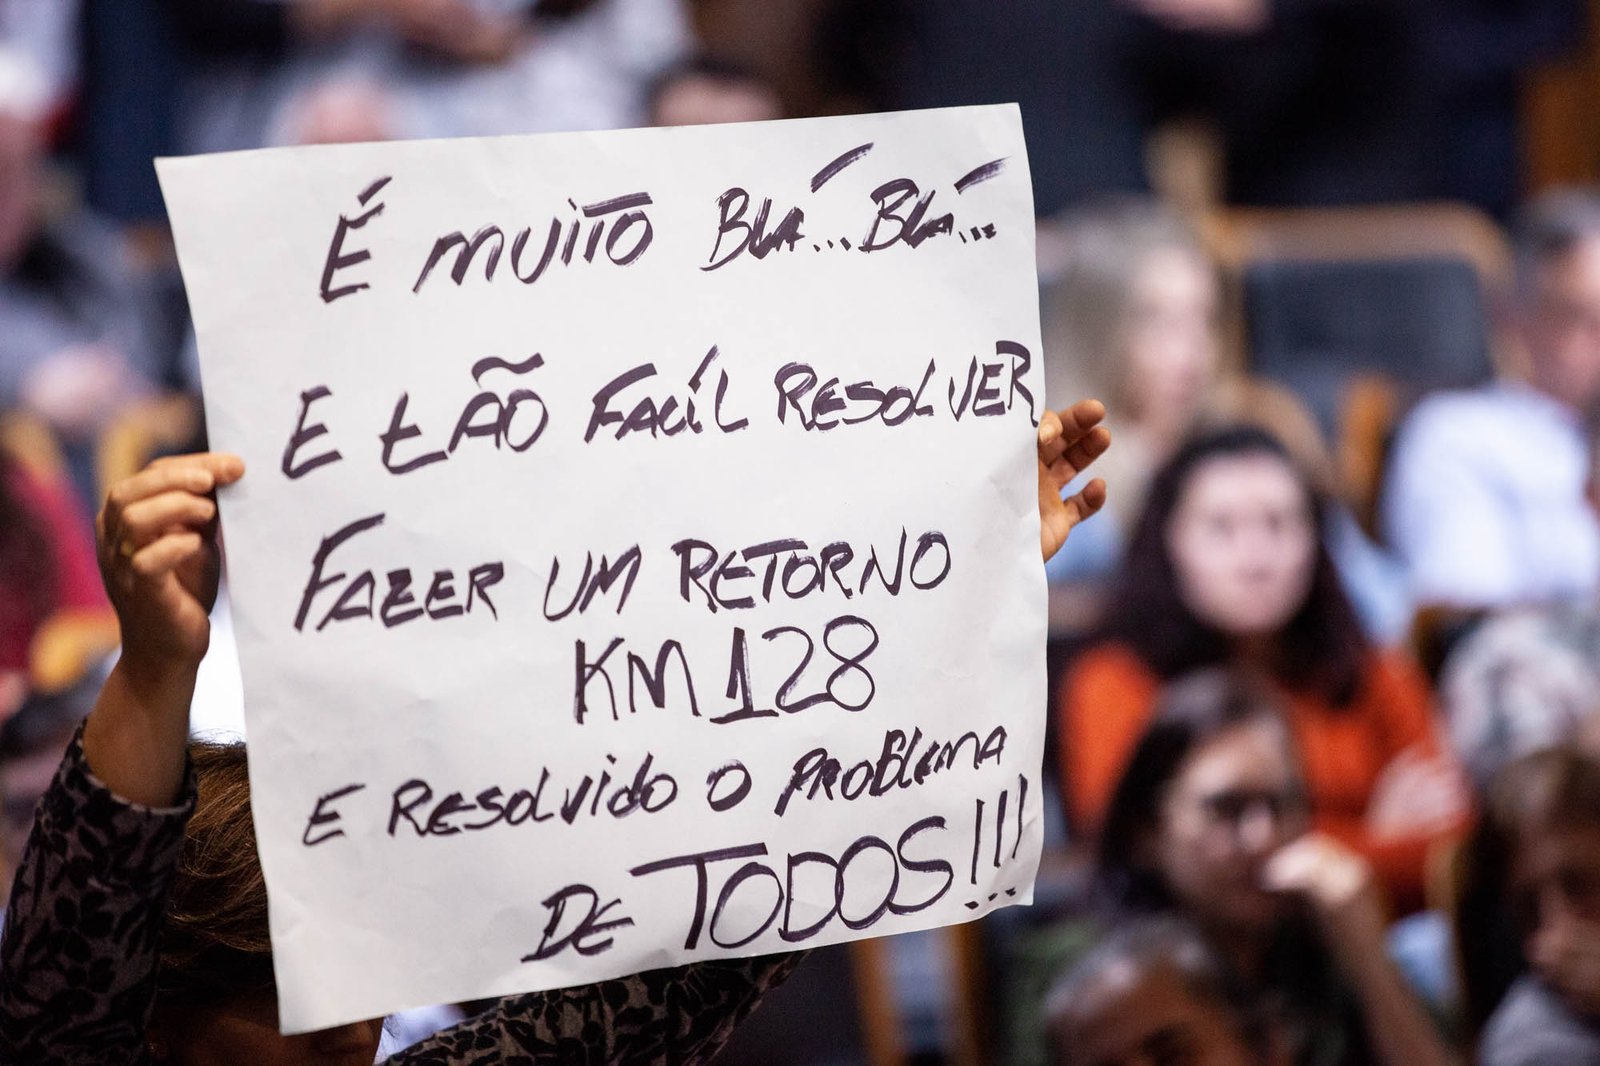 É MUITO BLÁ... BLÁ...
E TÃO FACÍL RESOLVER
FAZER UM RETORNO
KM 128
E RESOLVIDO O PROBLEMA
DE TODOS!!!